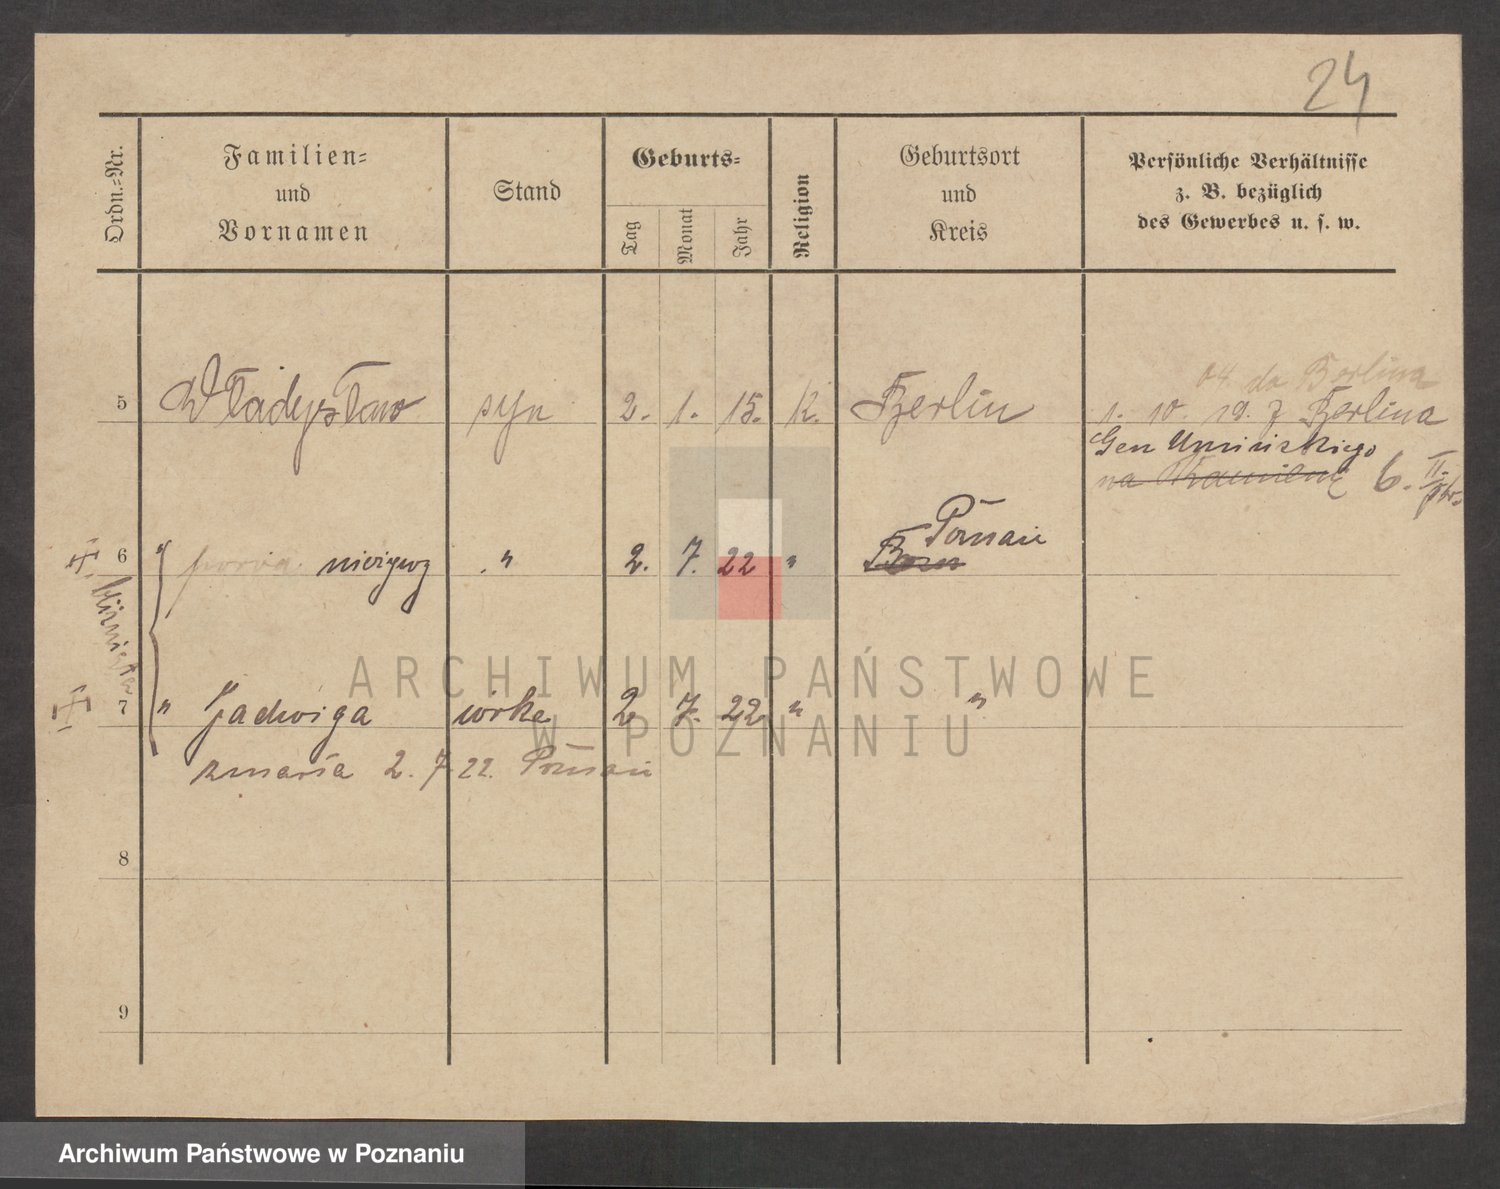 24
Ordn.=Nr.
Familien=
und
Vornamen
Stand
Geburts=
Tag
Monat
Jahr
Religion
Geburtsort
und
Kreis
Persönliche Verhältnisse
z. B. bezüglich
des Gewerbes u. s. w.
04. do Berlina
5 Władysław syn 2. 1. 15. K. Berlin 1. 10. 19. z Berlina
Gen Umińskiego
na 6. II.
Poznań
6 " nieżywy " 2. 7. 22 "
7 " Jadwiga córka 2 7. 22 " "
zmarła 2. 7. 22. Poznań
8
9
ARCHIWUM PAŃSTWOWE
W POZNANIU
Archiwum Państwowe w Poznaniu